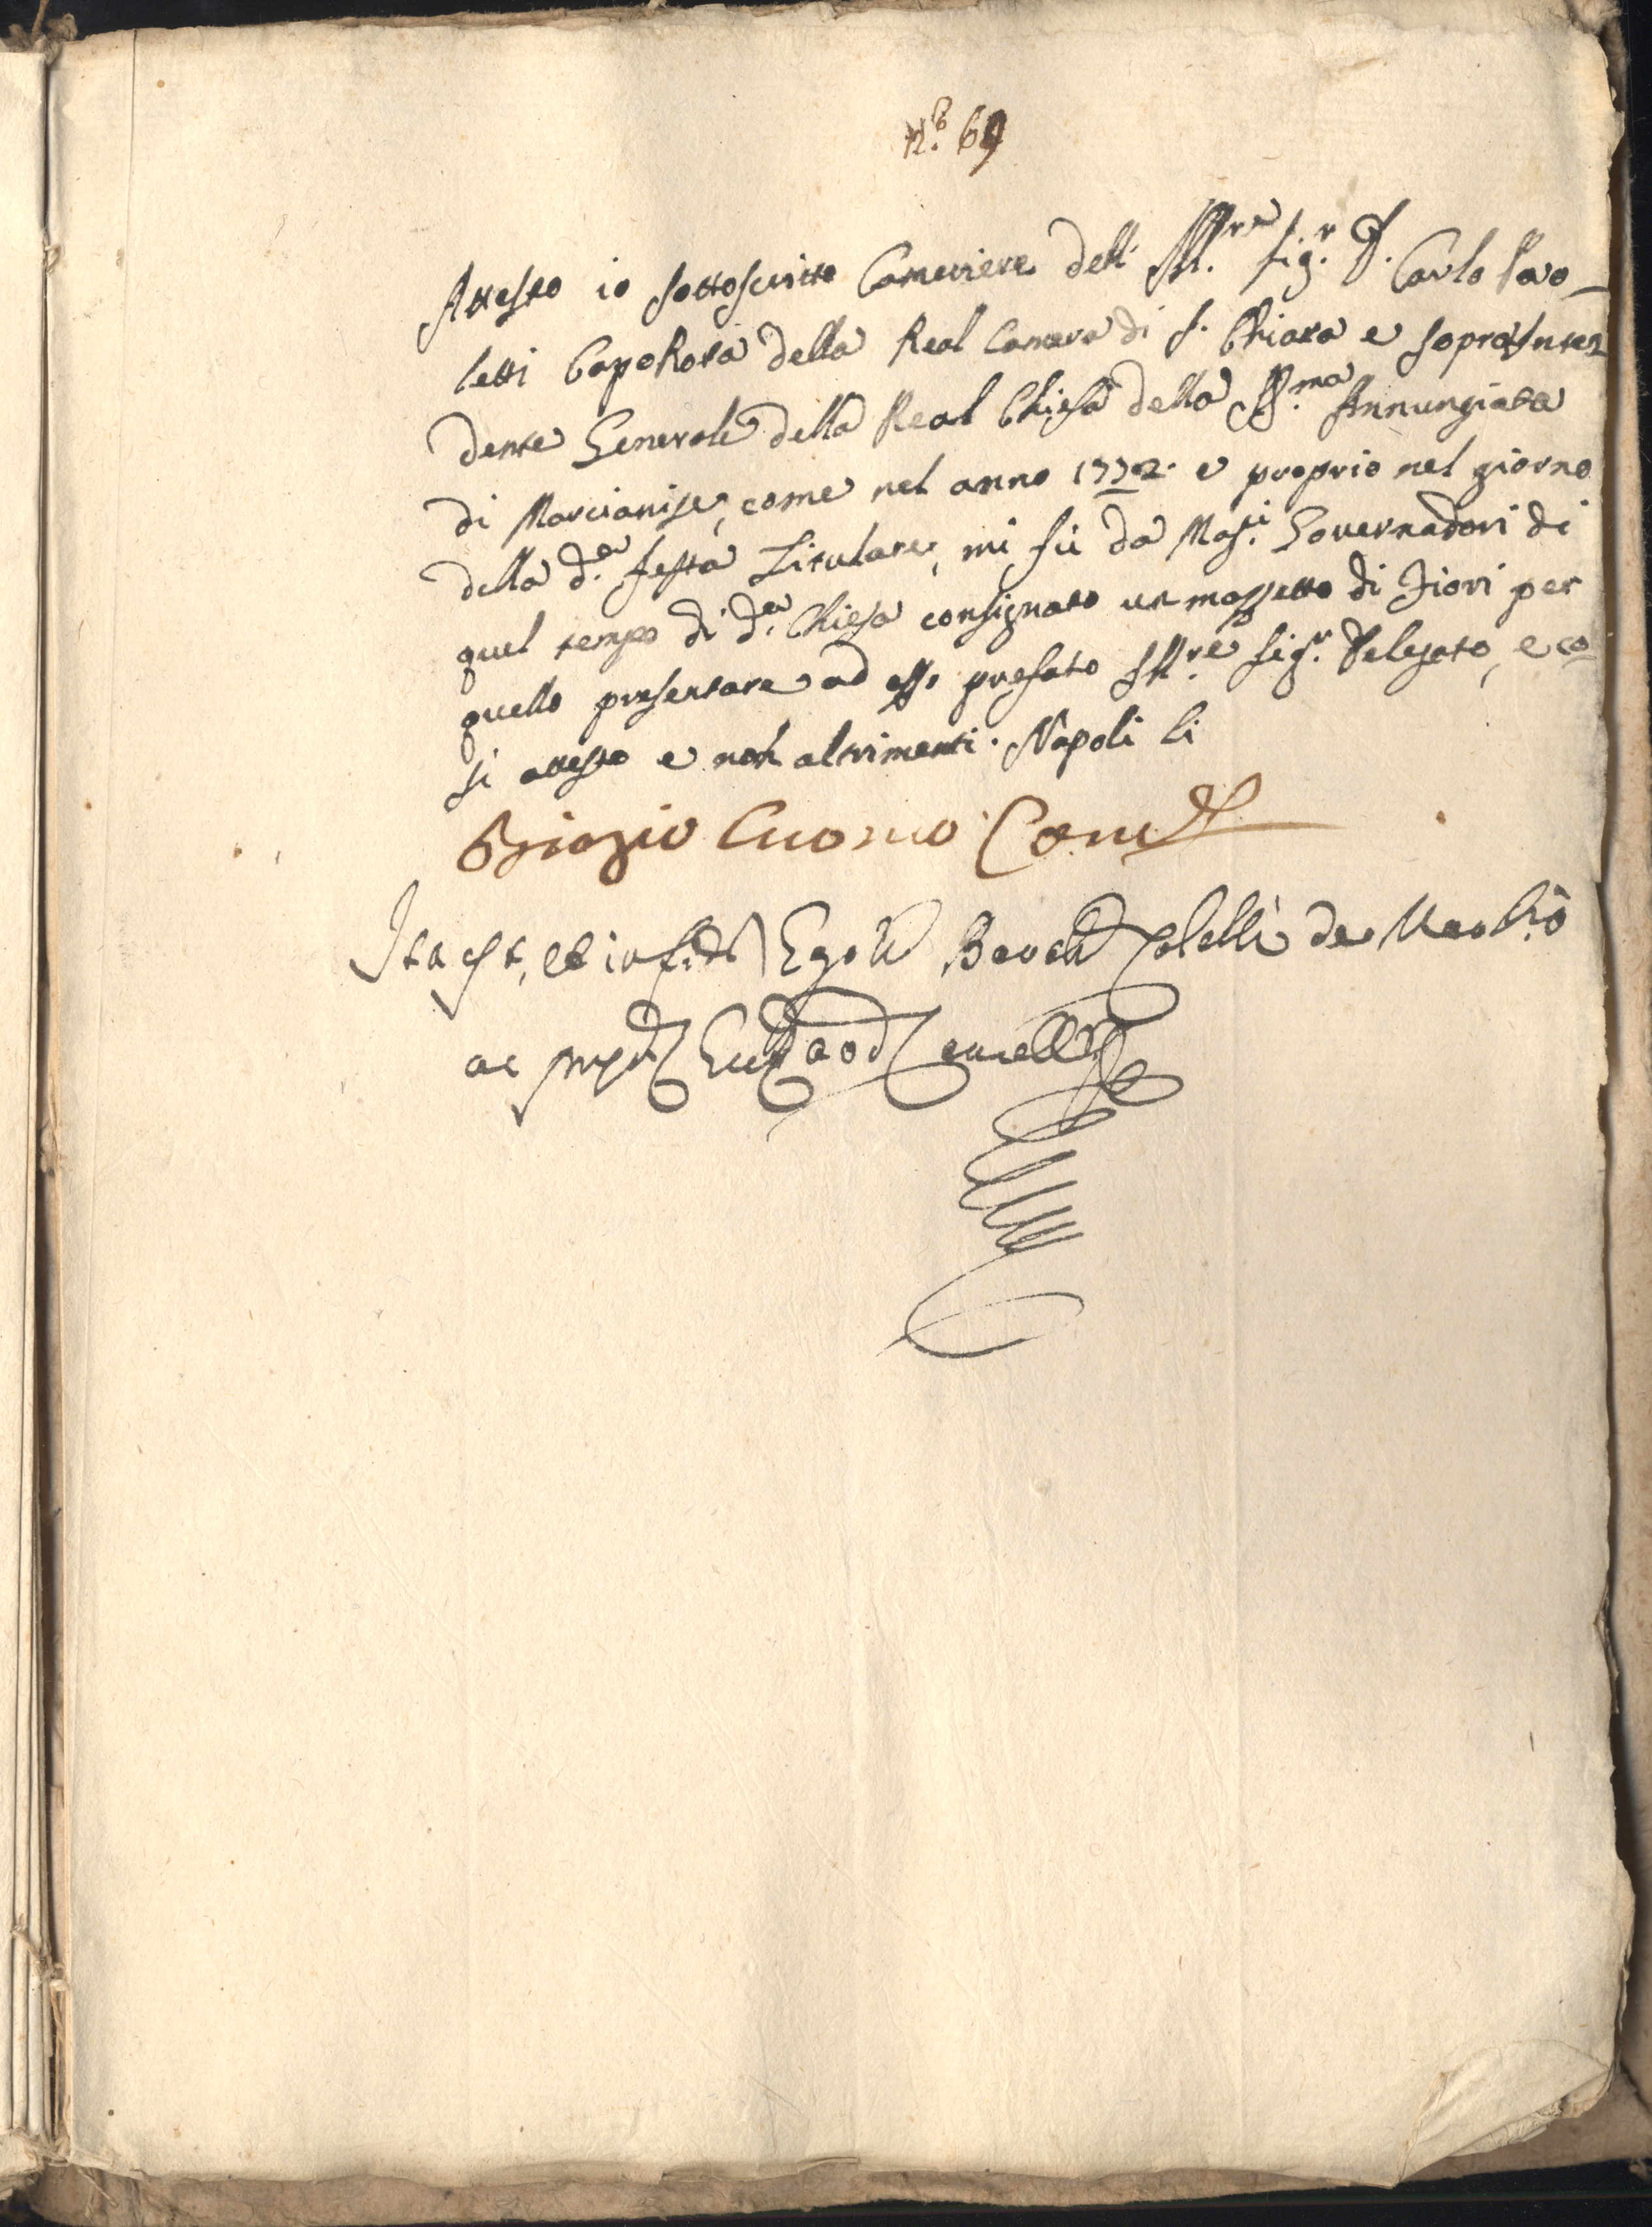 N.º 69
Attesto io sottoscritto Cameriere dell' Ill.re Sig.r D. Carlo Pao-
letti CapoRota della Real Camera di S. Chiara e sopraInten
dente Generale della Real Chiesa della SS.ma Annunziata
di Marcianise, come nel anno 1772. e proprio nel giorno
della d.a festa Titulare, mi fù da Mag.ci Governadori di
quel tempo di d.a Chiesa consignato un mazzetto di Fiori per
quello presentare ad esso prefato Ill.re Sig.r Delegato, e co
si attesto e non altrimenti. Napoli li
Biagio Cuomo Cam.re
Ita est, et in fidem Ego